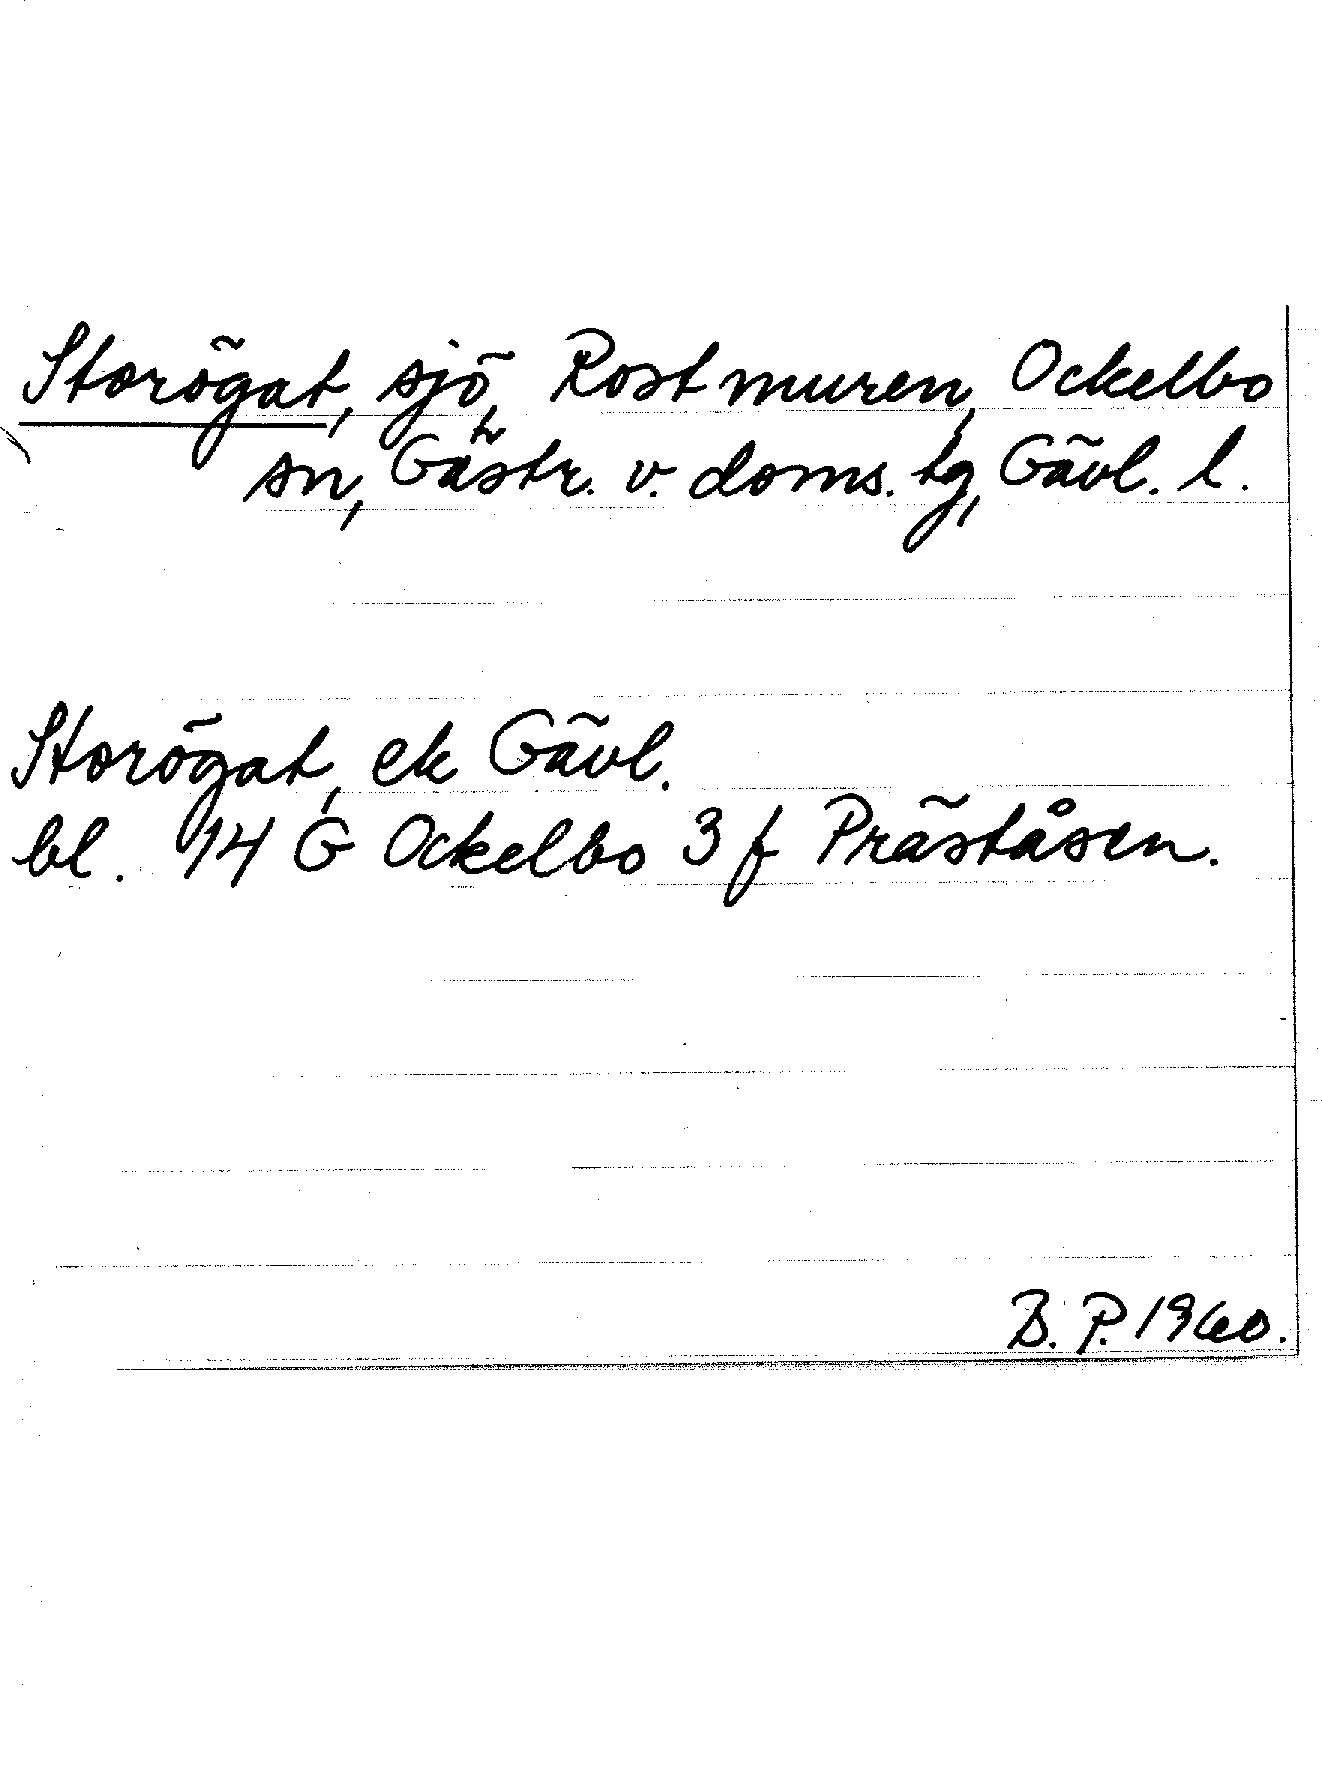 Storögat, sjö, Rostmuren, Ockelbo
sn, Gästr. v. doms. tg, Gävl. l.
Storögat, ek Gävl.
bl. 14 G Ockelbo 3 f Präståsen.
B. P. 1960.